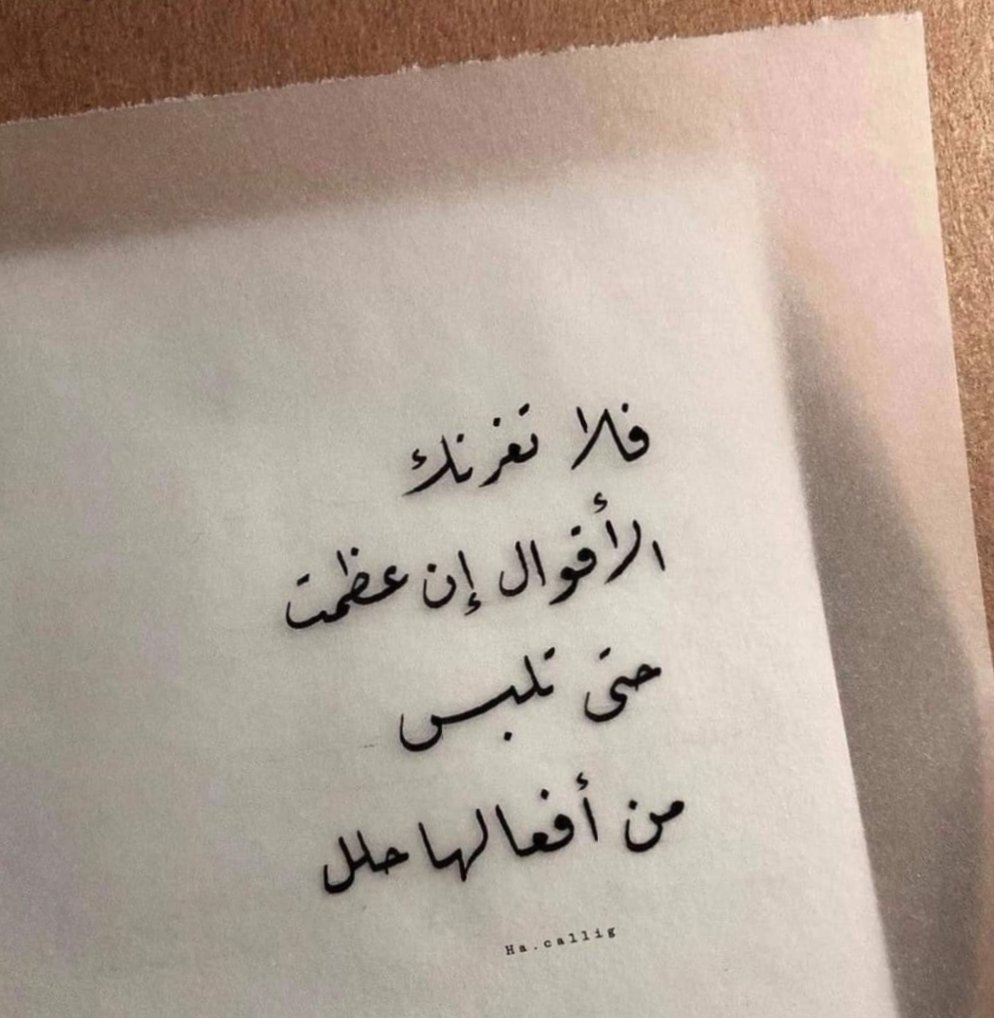 فلا تغرنك
الأقوال إن عظمت
حتى تلبس
من أفعالها حلل
Ha.callig